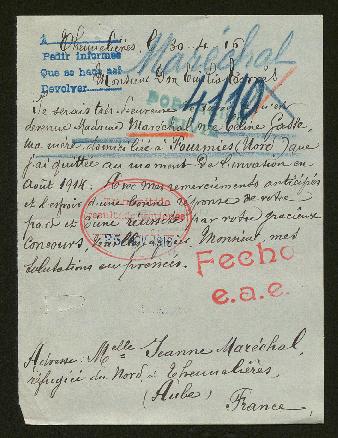 Thennelières, le 30-4-16
A
Pedir informes
Que se haga así
Devolver
Maréchal
Monsieur Don Emilio
4110
Je serais très heureuse
devenue Madame Maréchal, née
ma mère domiciliée à Fourmies (Nord) que
j'ai quittée au moment de l'invasion en
Août 1914. Avec mes remerciements anticipés
et l'espoir d'une bonne réponse de votre
part et d'une réussite par votre gracieux
concours, veuillez agréer, Monsieur, mes
salutations empressées.
Fecho
e.a.e.
Adresse: Melle Jeanne Maréchal,
réfugiée du Nord à Thennelières,
(Aube)
France